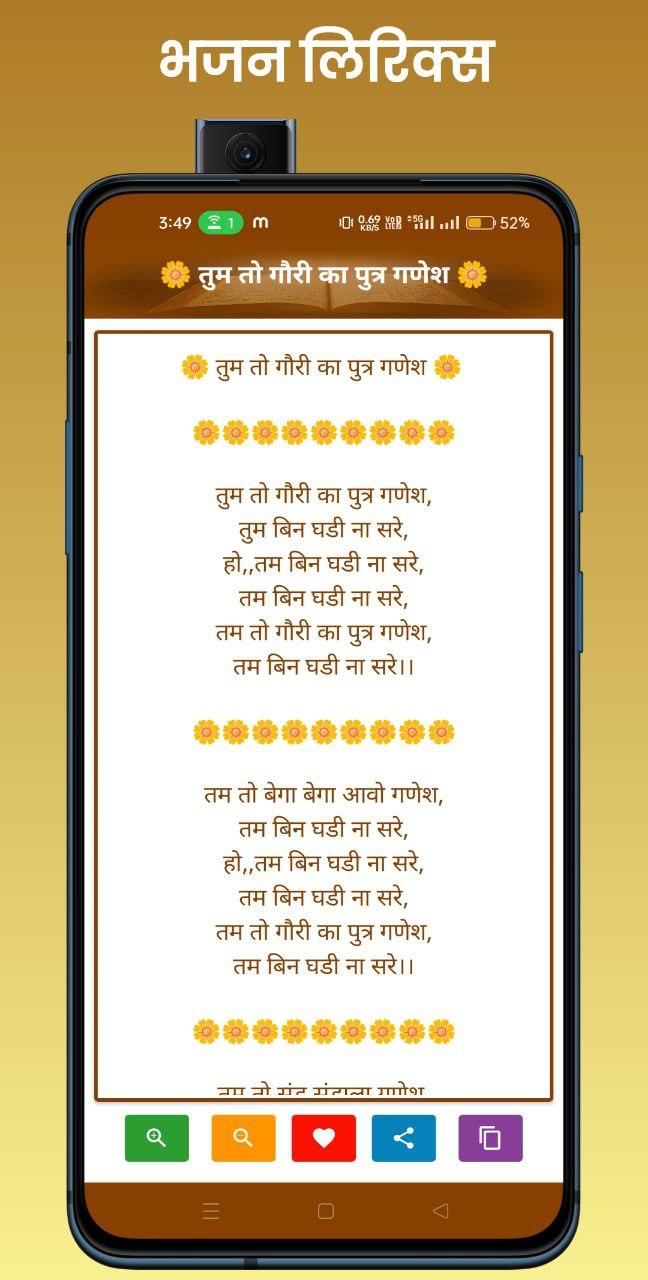 भजन लिरिक्स
3:49 1 m 0.69 KB/S VoD LTE2 5G 52%
तुम तो गौरी का पुत्र गणेश
तुम तो गौरी का पुत्र गणेश
तुम तो गौरी का पुत्र गणेश,
तुम बिन घडी ना सरे,
हो,,तम बिन घडी ना सरे,
तम बिन घडी ना सरे,
तम तो गौरी का पुत्र गणेश,
तम बिन घडी ना सरे।।
तम तो बेगा बेगा आवो गणेश,
तम बिन घडी ना सरे,
हो,,तम बिन घडी ना सरे,
तम बिन घडी ना सरे,
तम तो गौरी का पुत्र गणेश,
तम बिन घडी ना सरे।।
तम तो